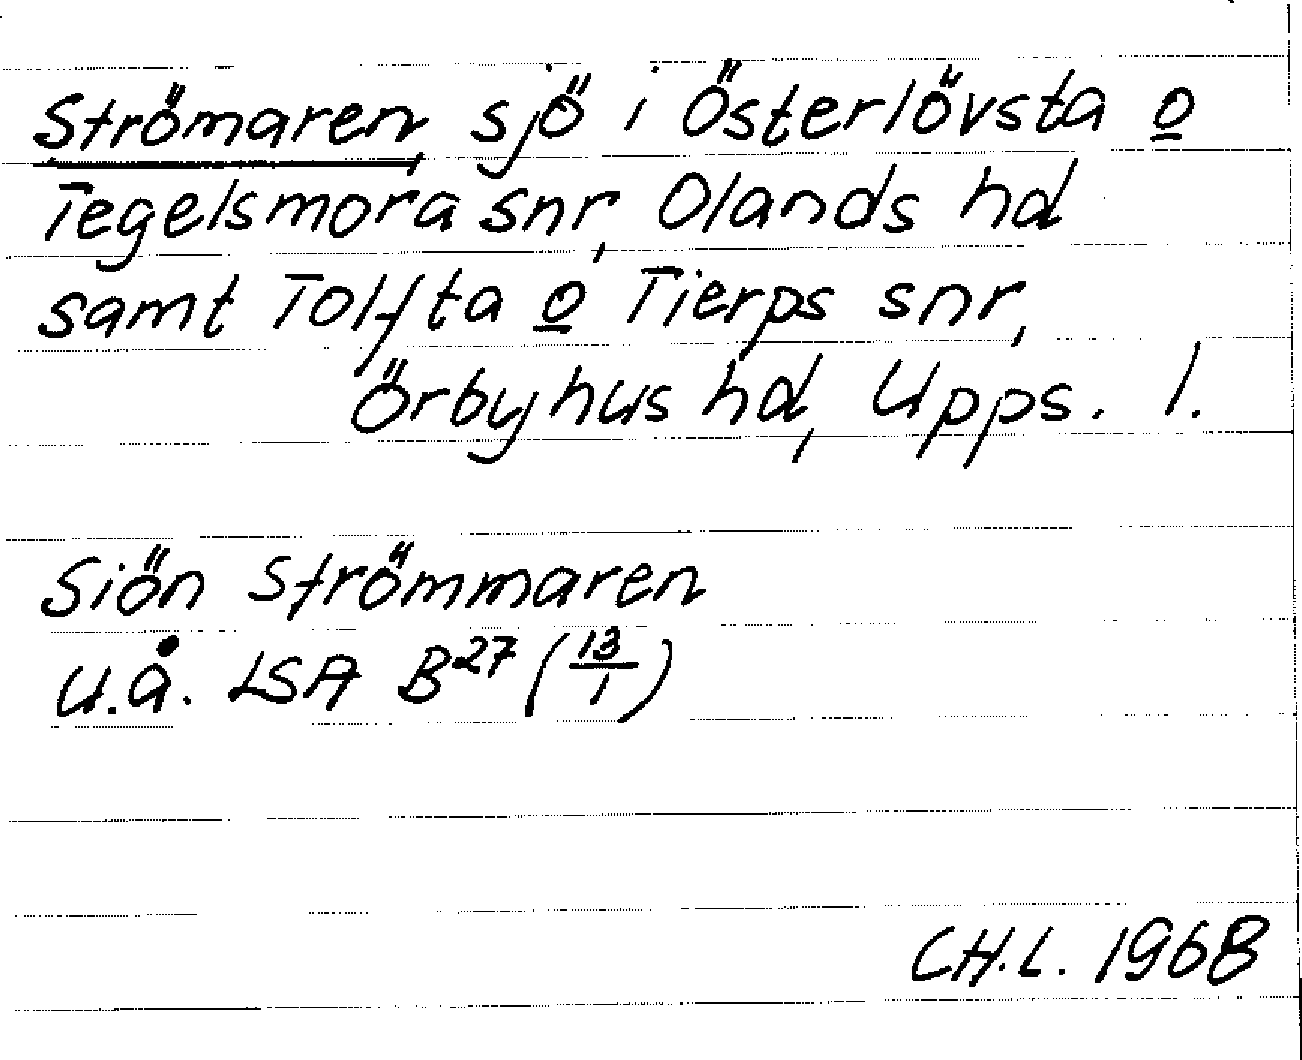 Strömaren, sjö i Österlövsta o
Tegelsmora snr, Olands hd
samt Tolfta o Tierps snr,
Örbyhus hd, Upps. l.
Siön Strömmaren
u.å. LSA B27 (13/1)
CH.L. 1968